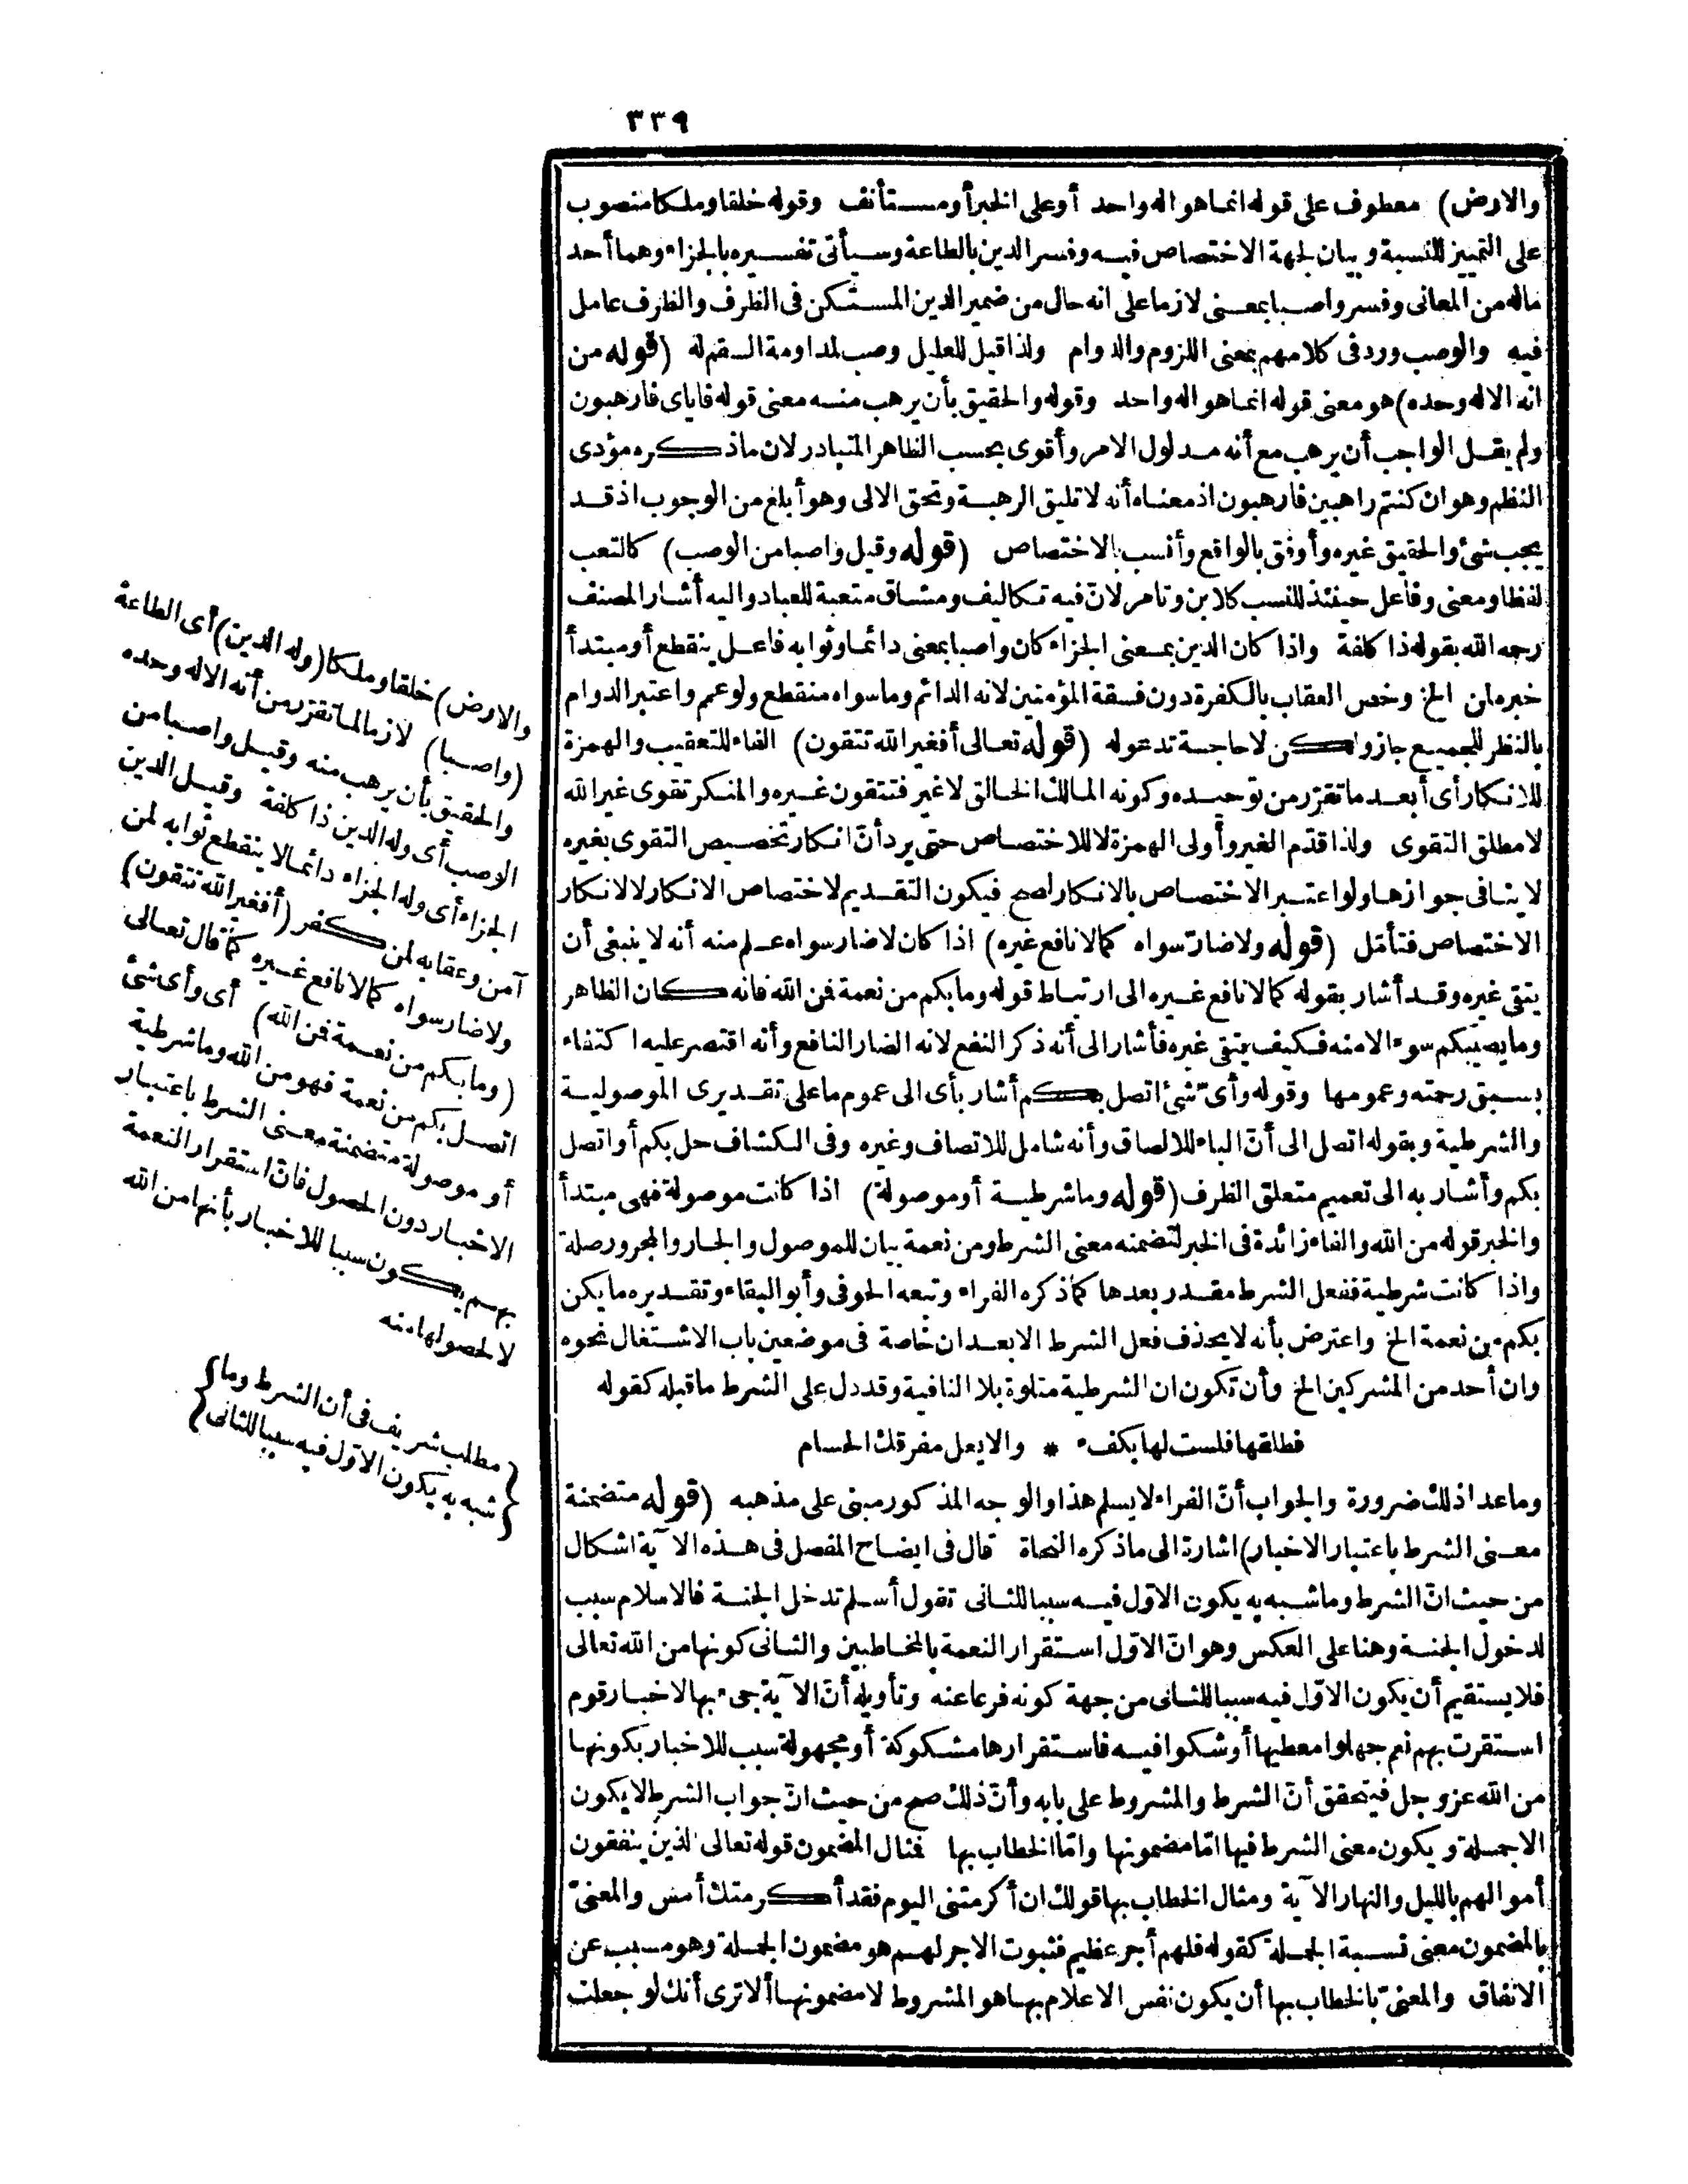 ٣٣٩
والارض) معطوف على قوله انما هو اله واحد أو على الخبر أو مستأنف وقوله خلقا وملكا منصوب
على التمييز للنسبة وبيان لجهة الاختصاص فيه وفسر الدين بالطاعة وسيأتى تفسيره بالجزاء وهما أحد
ماله من المعانى وفسر واصبا بمعنى لازما على انه حال من ضمير الدين المستكن فى الظرف والظرف عامل
فيه والوصب ورد فى كلامهم بمعنى اللزوم والدوام ولذا قيل للعليل وصب لمداومة السقم له (قوله من
انه الاله وحده) هو معنى قوله انما هو اله واحد وقوله والحقيق بأن يرهب منه معنى قوله فاياى فارهبون
ولم يقل الواجب أن يرهب مع أنه مدلول الامر وأقوى بحسب الظاهر المتبادر لان ماذكره مؤدى
النظم وهو ان كنتم راهبين فارهبون اذ معناه أنه لا تليق الرهبة وتحق الالى وهو أبلغ من الوجوب اذ قد
يجب شئ والحقيق غيره وأوفق بالواقع وأنسب بالاختصاص (قوله وقيل واصبا من الوصب) كالتعب
لفظا ومعنى وفاعل حينئذ للنسب كلابن وتامر لانّ فيه تكاليف ومشاق متعبة للعباد واليه أشار المصنف
رحمه الله بقوله ذا كلفة واذا كان الدين بمعنى الجزاء كان واصبا بمعنى دائما وثوابه فاعل ينقطع أو مبتدأ
خبره لمن الخ وخص العقاب بالكفرة دون فسقة المؤمنين لانه الدائم وما سواه منقطع ولو عمم واعتبر الدوام
بالنظر للجميع جاز ولكن لا حاجة تدعو له (قوله تعالى أفغير الله تتقون) الفاء للتعقيب والهمزة
للانكار أى أبعد ما تقرّر من توحيده وكونه المالك الخالق لا غير فتتقون غيره والمنكر تقوى غير الله
لا مطلق التقوى ولذا قدّم الغير وأولى الهمزة لا للاختصاص حتى يرد أنّ انكار تخصيص التقوى بغيره
لا ينافى جوازها ولو اعتبر الاختصاص بالانكار لصح فيكون التقديم لاختصاص الانكار لا لانكار
الاختصاص فتأمّل (قوله ولا ضارّ سواه كما لا نافع غيره) اذا كان لا ضار سواه علم منه أنه لا ينبغى أن
يتقى غيره وقد أشار بقوله كما لا نافع غيره الى ارتباط قوله وما بكم من نعمة فمن الله فانه كان الظاهر
وما يصيبكم سوء الا منه فكيف يتقى غيره فأشار الى أنه ذكر النفع لانه الضار النافع وأنه اقتصر عليه اكتفاء
بسبق رحمته وعمومها وقوله وأىّ شئ اتصل بكم أشار بأى الى عموم ما على تقديرى الموصولية
والشرطية وبقوله اتصل الى أنّ الباء للالصاق وأنه شامل للاتصاف وغيره وفى الكشاف حل بكم أو اتصل
بكم وأشار به الى تعميم متعلق الظرف (قوله وما شرطية أو موصولة) اذا كانت موصولة فهى مبتدأ
والخبر قوله من الله والفاء زائدة فى الخبر لتضمنه معنى الشرط ومن نعمة بيان للموصول والجار والمجرور صلة
واذا كانت شرطية ففعل الشرط مقدر بعدها كما ذكره الفراء وتبعه الحوفى وأبو البقاء وتقديره ما يكن
بكم من نعمة الخ واعترض بأنه لا يحذف فعل الشرط الا بعد ان خاصة فى موضعين باب الاشتغال نحوه
وان أحد من المشركين الخ وأن تكون ان الشرطية متلوة بلا النافية وقد دل على الشرط ما قبله كقوله
فطلقها فلست لها بكفء * والا يعل مفرقك الحسام
وما عدا ذلك ضرورة والجواب أنّ الفراء لا يسلم هذا والوجه المذكور مبنى على مذهبه (قوله متضمنة
معنى الشرط باعتبار الاخبار) اشارة الى ما ذكره النحاة قال فى ايضاح المفصل فى هذه الآية اشكال
من حيث انّ الشرط وما شبه به يكون الاوّل فيه سببا للثانى تقول أسلم تدخل الجنة فالاسلام سبب
لدخول الجنة وهنا على العكس وهو انّ الاوّل استقرار النعمة بالمخاطبين والثانى كونها من الله تعالى
فلا يستقيم أن يكون الاوّل فيه سببا للثانى من جهة كونه فرعا عنه وتأويله أنّ الآية جىء بها لاخبار قوم
استقرت بهم نعم جهلوا معطيها أو شكوا فيه فاستقرارها مشكوكة أو مجهولة سبب للاخبار بكونها
من الله عز وجل فيتحقق أنّ الشرط والمشروط على بابه وأنّ ذلك صح من حيث انّ جواب الشرط لا يكون
الا جملة ويكون معنى الشرط فيها امّا مضمونها وامّا الخطاب بها فمثال المضمون قوله تعالى الذين ينفقون
أموالهم بالليل والنهار الآية ومثال الخطاب بها قولك ان أكرمتنى اليوم فقد أكرمتك أمس والمعنىّ
بالمضمون معنى نسبة الجملة كقوله فلهم أجر عظيم فثبوت الاجر لهم هو مضمون الجملة وهو مسبب عن
الانفاق والمعنىّ بالخطاب بها أن يكون نفس الاعلام بها هو المشروط لا مضمونها ألا ترى أنك لو جعلت
والارض) خلقا وملكا (وله الدين) أى الطاعة
(واصبا) لازما لما تقرّر من أنه الاله وحده
والحقيق بأن يرهب منه وقيل واصبا من
الوصب أى وله الدين ذا كلفة وقيل الدين
الجزاء أى وله الجزاء دائما لا ينقطع ثوابه لمن
آمن وعقابه لمن كفر (أفغير الله تتقون)
ولا ضار سواه كما لا نافع غيره كما قال تعالى
(وما بكم من نعمة فمن الله) أى وأى شئ
اتصل بكم من نعمة فهو من الله وما شرطية
أو موصولة متضمنة معنى الشرط باعتبار
الاخبار دون الحصول فانّ استقرار النعمة
بهم يكون سببا للاخبار بأنها من الله
لا لحصولها منه
{مطلب شريف فى أن الشرط وما}
{شبه به يكون الاوّل فيه سببا للثانى}